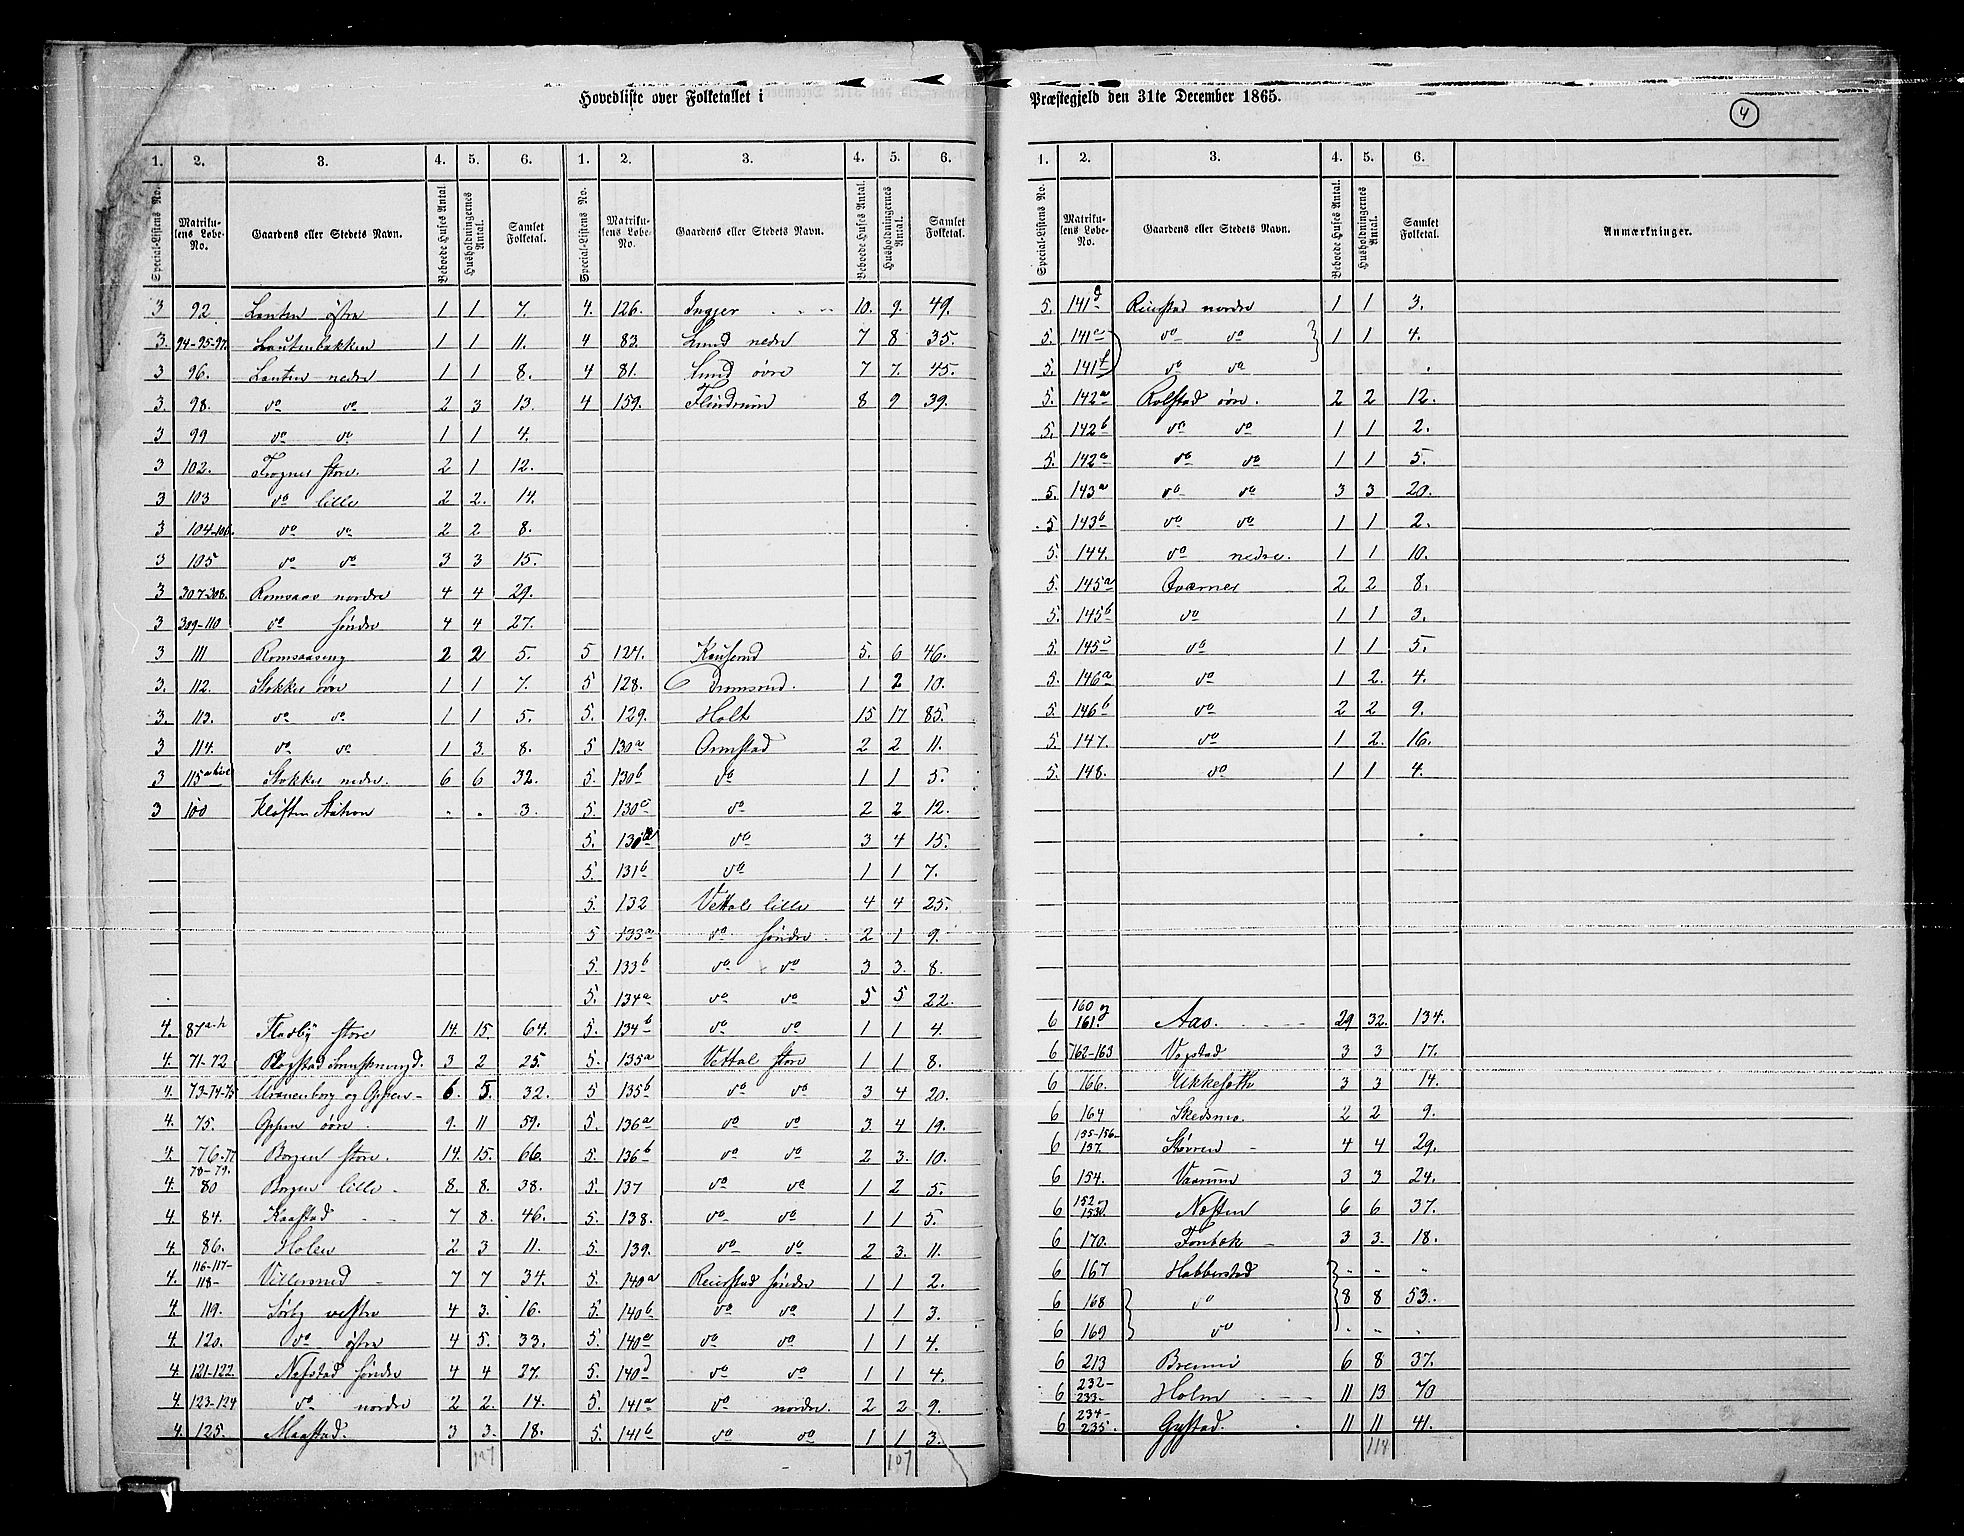 Hovedliste over Folketallet i
Præstegjeld den 31te December 1865.
4
1. 2. 3. 4. 5. 6. 1. 2. 3. 4. 5. 6.
Special-Listens No. Matrikulens Løbe-No. Gaardens eller Stedets Navn. Beboede Huses Antal. Husholdningernes Antal. Samlet Folketal. Special-Listens No. Matrikulens Løbe-No. Gaardens eller Stedets Navn. Beboede Huses Antal. Husholdningernes Antal. Samlet Folketal.
3 92 Lauten østre 1 1 7.
3. 94-95-97. Lautenbakken 1 1 11.
3 96. Lauten nedre 1 1 8.
3. 98. do do 2 3 13.
3 99 do do 1 1 4.
3 102. Frogner store 2 1 12.
3 103 do lille 2 2. 14.
3 104-106. do do 2 2 8.
3 105 do do 3 3 15.
3 307-308. Romsaas nordre 4 4 29.
3 309-110 do søndre 4 4 27.
3 111 Romsaaseng 2 2 5.
3. 112. Stokker øvre 1 1 7.
3. 113. do do 1 1 5.
3 114. do do 1 3. 8.
3 115 Stokker nedre. 6 6 32.
3 100 Kløften Station . . 3.
4. 87a-h Fladby store 14. 15. 64.
4. 71-72 3 2 25.
4. 73-74-75 Kronenborg og Oppen 6. 5. 32.
4. 75. Oppen øvre 9. 11 59.
4. 76-77 78-79. Borgen store 14. 15. 66.
4. 80 Borgen lille 8. 8. 38.
4. 84. Kaastad 7 8. 46.
4. 86. Holen 2 3 11.
4. 116-117-118- Villersrud 7 7 34.
4. 119. Sørby vestre 4 3. 16.
4. 120. do østre 4 5. 33.
4. 121-122. Nafstad søndre 4 4 27.
4. 123-124 do nordre 2 2. 14.
4. 125. Maastad. 3 3. 18.
107
4. 126. Ingjer 10. 9. 49.
4 83. Lund nedre 7 8 35.
4 81. Lund øvre 7 7. 45.
4 159. Flindrum 8 9 39.
5 127. Kauserud 5. 6 46.
5 128. Dromsrud. 1 2 10.
5. 129. Holt 15 17 85.
5 130a Ormstad 2 2 11.
5. 130b do 1 1 5.
5. 130c do 2 2 12.
5. do 3 4 15.
5. 131b do 1 1 7.
5. 132 Vettal lille 4 4 25.
5 133a do søndre 2 1 9.
5. 133b do do 3 3. 8.
5. 134a do do 5 5 22.
5. 134b do do 1 1 4.
5. 135a Vettal store 1 1 8.
5 135b do do 3 4 20.
5. 136a do do 3. 4 19.
5. 136b do do 2 3. 10.
5. 137 do do 1 2 5.
5. 138. do do 1 1 5.
5. 139. do do 2 3. 11.
5. 140a Reierstad søndre 1 1 2.
5. 140b do do 1 1 3.
5. 140c do do 1 1 4.
5. 140d do do 1 1 4.
5. 141a do nordre. 2 2 9.
5. 141b do do 1 1 3.
107
1. 2. 3. 4. 5. 6.
Special-Listens No. Matrikulens Løbe-No. Gaardens eller Stedets Navn. Beboede Huses Antal. Husholdningernes Antal. Samlet Folketal. Anmærkninger.
5. 141d Reierstad nordre 1 1 3.
5. 141e do do 1 1 4.
5. 141f do do
5. 142a Rolstad øvre. 2 2 12.
5. 142b do do 1 1 2.
5. 142c do do 1 1 5.
5. 143a do do 3 3 20.
5 143b do do 1 1 2.
5. 144. do nedre. 1 1 10.
5. 145a Qværner 2 2 8.
5. 145b do 1 1 3.
5. 145c do 1 1 5.
5. 146a do 1 2. 4.
5. 146b do 2 2 9.
5. 147. do 1 2. 16.
5. 148. do 1 1 4.
6 160 og 161. Aas. 29 32. 134.
6 162-163 Vogstad 3 3 17.
6 166. Ukkesøth 3 3 14.
6 164 Skedsmo. 2 2 9.
6 155-156-157. Støvren 4 4 29.
6 154. Vaarum 3 3 24.
6 152-153 Nosten 6 6 37.
6 170. Fonbæk 3 3. 18.
6 167 Habberstad
6 168 do 8 8 53.
6 169 do
6 213 Brenni 6 8 37.
6 232-233- Holm 11 13 70
6 234-235. Gystad. 11 11 41.
118